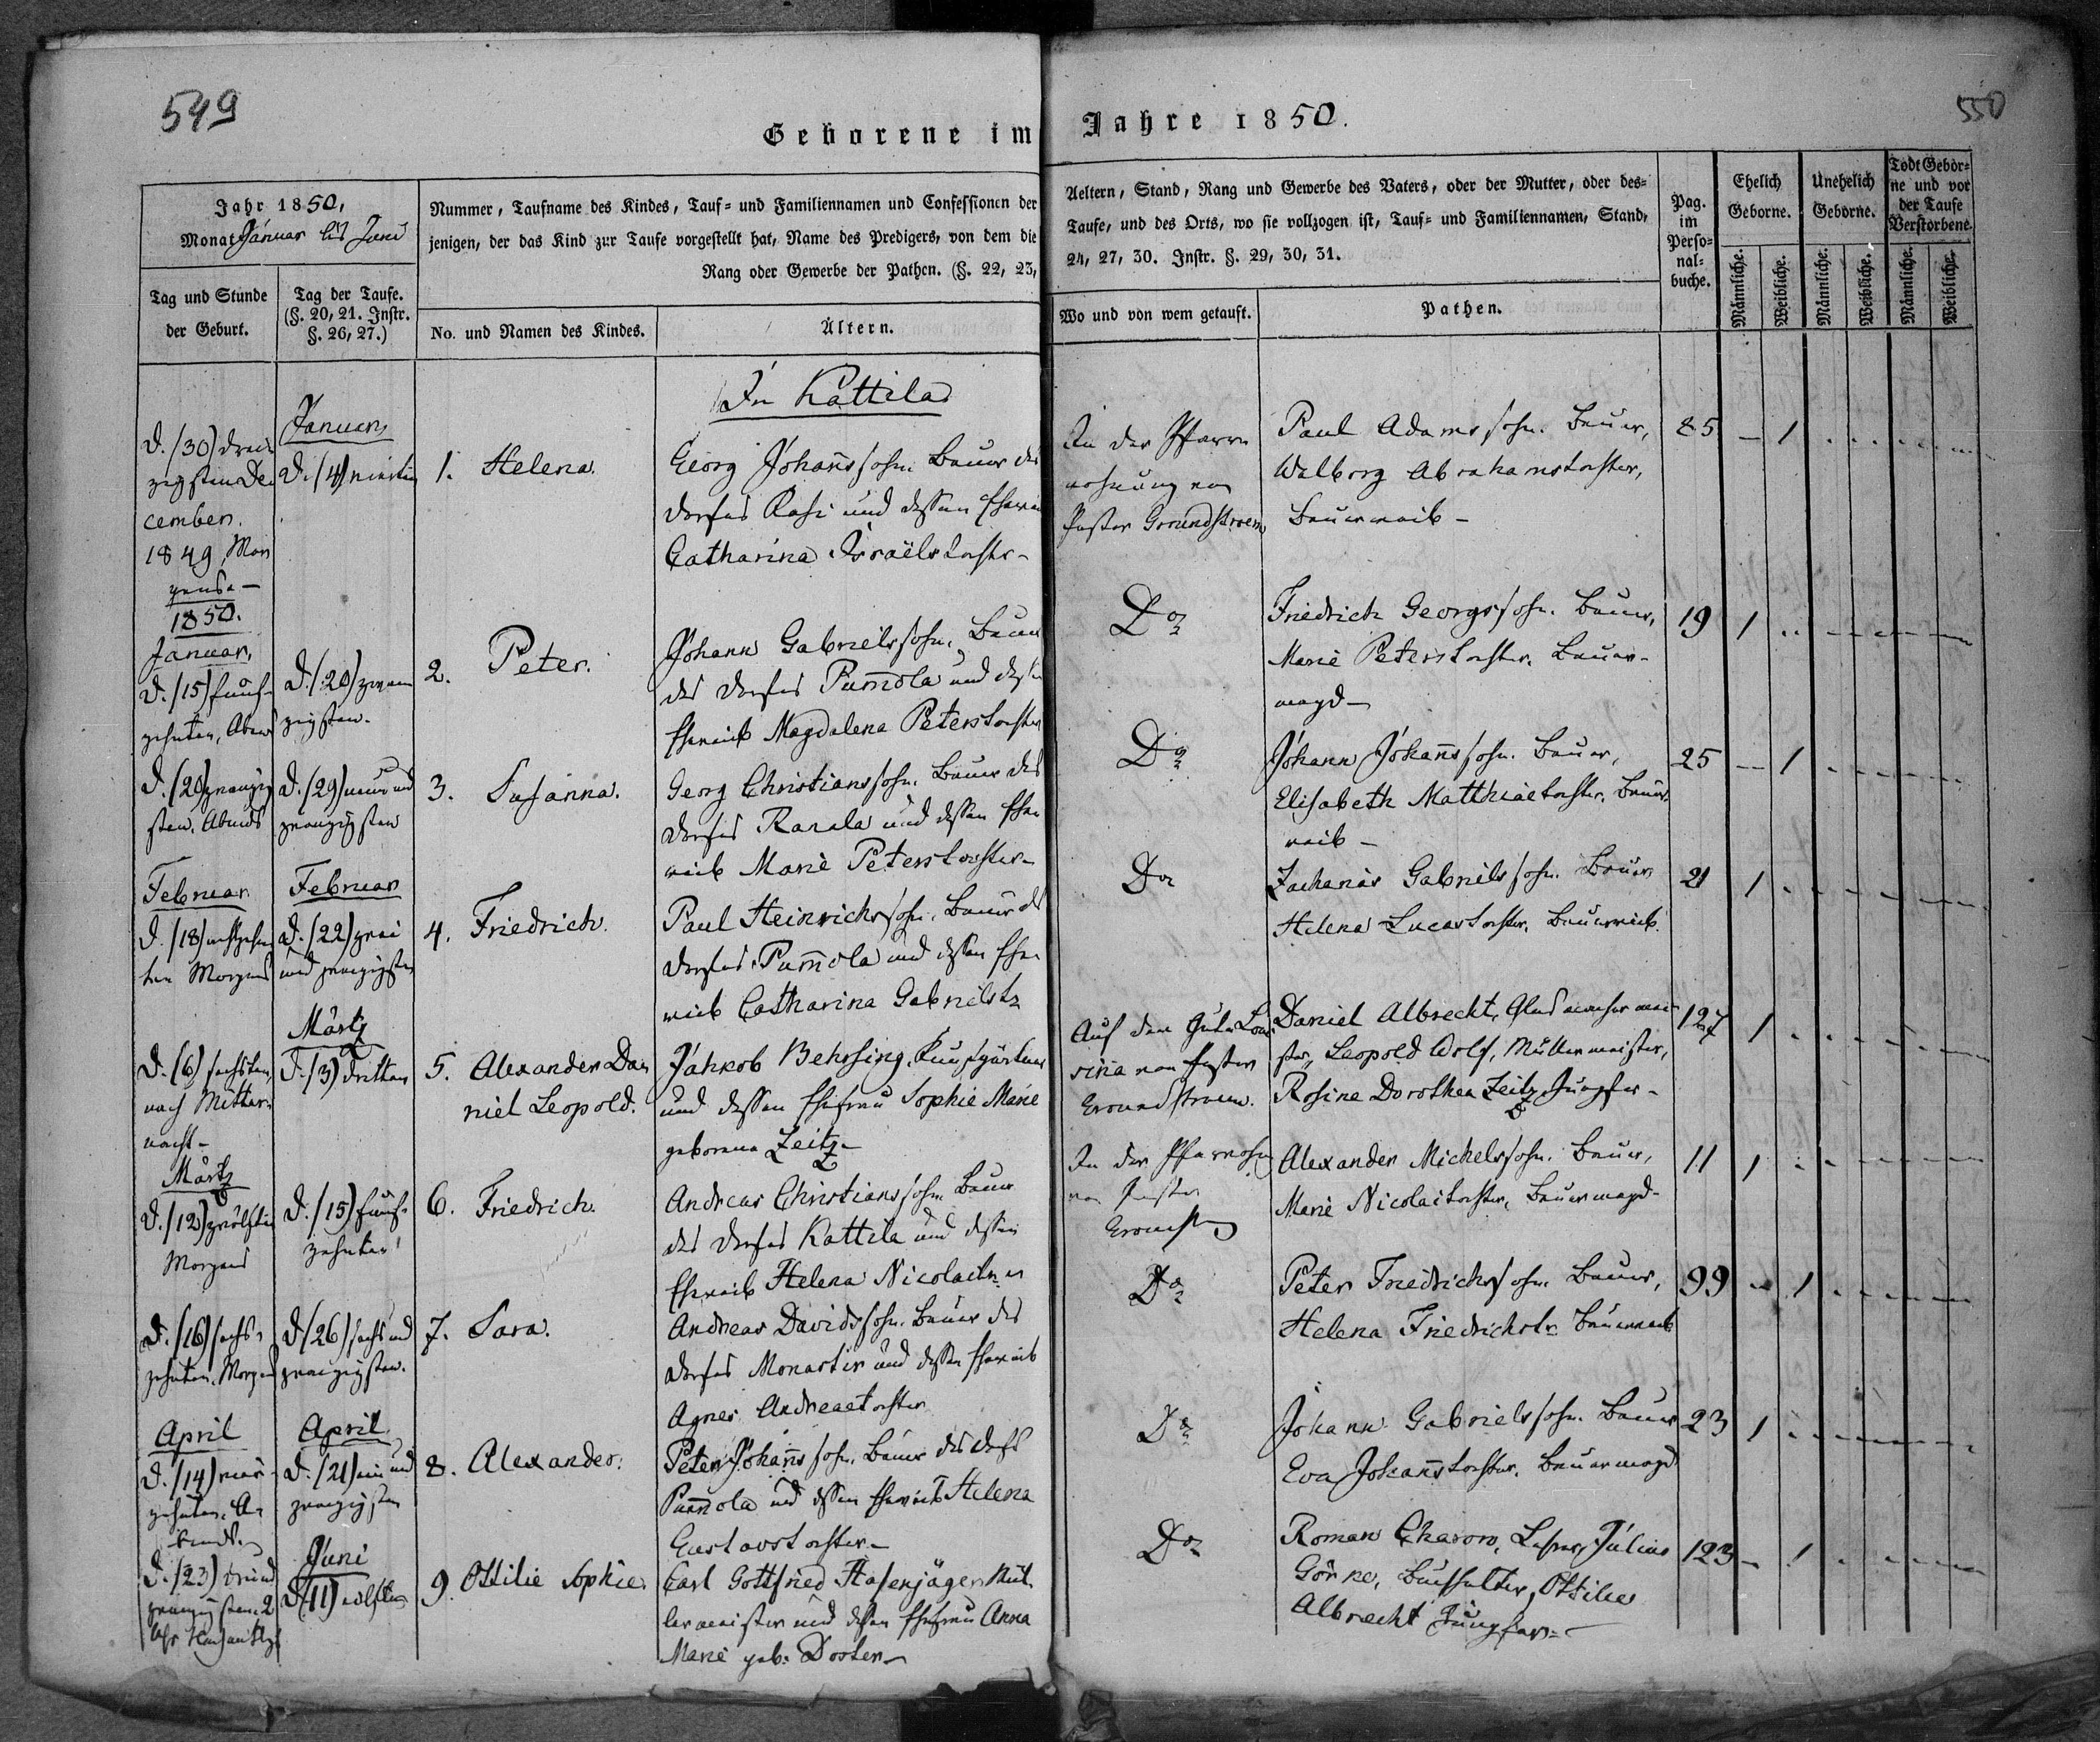 549
550
Geborene im Jahre 1850.
Jahr 1850,
Monat Januar bis Juni
Nummer, Taufname des Kindes, Tauf- und Familiennamen und Confessionen der
jenigen, der das Kind zur Taufe vorgestellt hat, Name des Predigers, von dem die
Rang oder Gewerbe der Pathen. (§. 22, 23,
Aeltern, Stand, Rang und Gewerbe des Vaters, oder der Mutter, oder des=
Taufe, und des Orts, wo sie vollzogen ist, Tauf= und Familiennamen, Stand,
24, 27, 30. Instr. §. 29, 30, 31.
Pag.
im
Perso=
nal=
buche.
Ehelich
Geborne.
Unehelich
Geborne.
Todt Gebor=
ne und vor
der Taufe
Verstorbene.
Tag und Stunde
der Geburt.
Tag der Taufe.
(§. 20, 21. Instr.
§. 26, 27.)
No. und Namen des Kindes.
Ältern.
Wo und von wem getauft.
Pathen.
Männliche.
Weibliche.
Männliche.
Weibliche.
Männliche.
Weibliche.
In Kattila
d. (30) drei
zigsten De
cember.
1849, Mor
gens. –
Januar,
d. (4) vierten
1. Helena.
Georg Johanns sohn. Bauer des
Dorfes Rasi und dessen Eheweib
Catharina Israëls tochter –
In der Pfarr
wohnung von
Pastor Grundstroem
Paul Adams sohn. Bauer,
Walborg Abrahamstochter,
Bauerweib –
85 – 1
1850.
Januar,
d. (15) fünf-
zehnten, Abends
d. (20) zwan
zigsten.
2. Peter.
Johann Gabriels sohn, Bauer
des Dorfes Pummola und dessen
Eheweib Magdalena Peterstochter
Do
Friedrich Georgs sohn. Bauer,
Marie Peterstochter. Bauer-
magd –
19 1
d. (20) zwanzig
sten, Abends
d. (29) neun und
zwanzigsten
3. Susanna.
Georg Christians sohn. Bauer des
Dorfes Ranala und dessen Ehe
weib Marie Peterstochter –
Do
Johann Johanns sohn. Bauer,
Elisabeth Matthiaetochter. Bauer
weib –
25 – 1
Februar
d. (18) achtzehn
ten Morgens
Februar
d. (22) zwei
und zwanzigsten
4. Friedrich.
Paul Heinrichs sohn. Bauer des
Dorfes Pummola und dessen Ehe
weib Catharina Gabrielstr
Do
Zacharias Gabriels sohn. Bauer
Helena Lucastochter. Bauerweib
21 1
d. (6) sechsten,
nach Mitter-
nacht –
Märtz
d. (3) dritten
5. Alexander Da
niel Leopold.
Jahkob Behrsing, Kunstgärtner
und dessen Ehefrau Sophie Marie
geborene Zeitz –
Auf dem Gute
von Pastor
Grundstroem.
Daniel Albrecht, Glasmacher mei
ster, Leopold Wolf, Müllermeister,
Rosine Dorothea Zeitz Jungfer –
127 1
Märtz
d. (12) zwölften
Morgens
d. (15) fünf-
zehnten
6. Friedrich.
Andreas Christians sohn Bauer
des Dorfes Kattila und dessen
Eheweib Helena Nicolaitr
In der Pfarrwohn
von Pastor
Alexander Michels sohn. Bauer,
Marie Nicolaitochter, Bauermagd –
11 1
d. (16) sechs-
zehnten, Morgens
d. (26) sechs und
zwanzigsten.
7. Sara.
Andreas Davids sohn. Bauer des
Dorfes Monastir und dessen Eheweib
Agnes Andreaetochter
Do
Peter Friedrichs sohn. Bauer,
Helena Friedrichstr. Bauerweib
99 – 1
April
d. (14) vier-
zehnten, A-
bends.
April
d. (21) ein und
zwanzigsten
8. Alexander.
Peter Johanns sohn. Bauer des Dorfs
Pummola und dessen Eheweib Helena
Gustavstochter –
Do
Johann Gabriels sohn. Bauer
Eva Johannstochter. Bauermagd
23 1
d. (23) drei und
zwanzigsten 2
Uhr
Juni
d. (11) eilften
9. Ottilie Sophie.
Carl Gottfried Hasenjäger, Mül
lermeister und dessen Ehefrau Anna
Marie geb. Doster –
Do
Roman Charow, Julius
Görke, Buchhalter, Ottilie
Albrecht Jungfer –
123 – 1